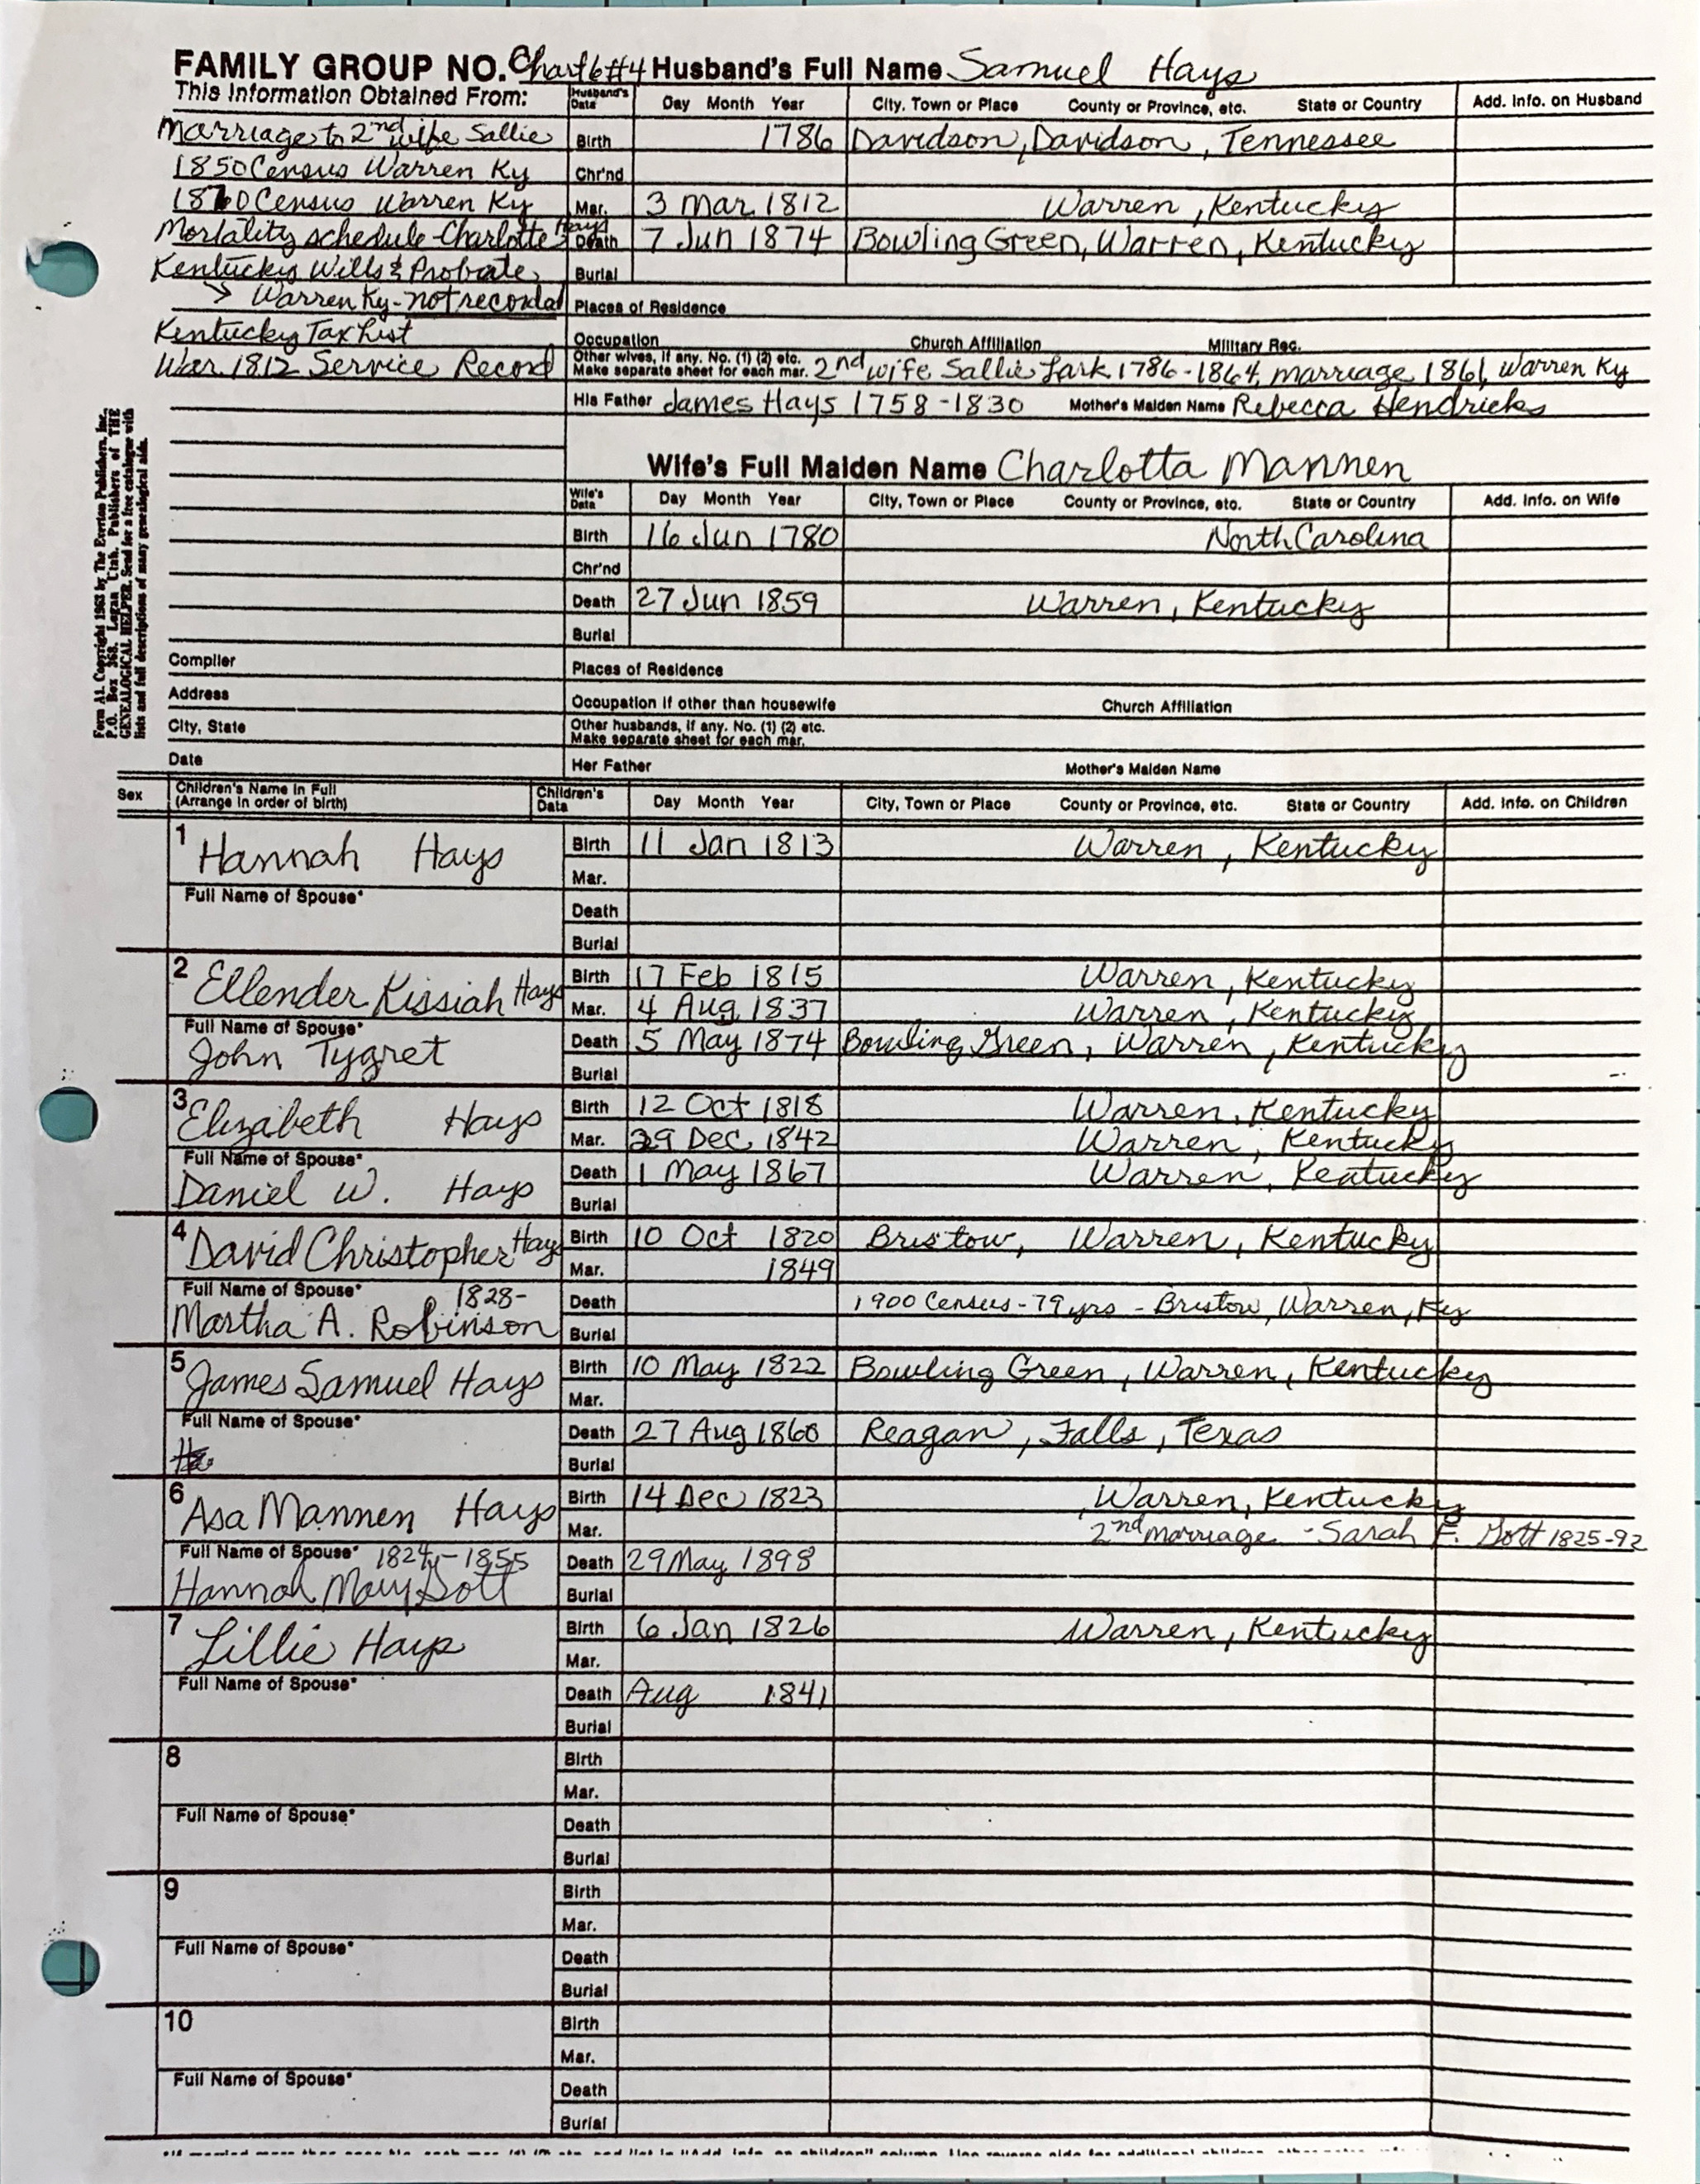 FAMILY GROUP NO. Chart 6 #4 Husband's Full Name Samuel Hays
This Information Obtained From:
Husband's Data Day Month Year City, Town or Place County or Province, etc. State or Country Add. Info. on Husband
Marriage to 2nd wife Sallie
Birth 1786 Davidson, Davidson, Tennessee
1850 Census Warren Ky
Chr'nd
1860 Census Warren Ky
Mar. 3 Mar 1812 Warren, Kentucky
Mortality schedule - Charlotte Hays
Death 7 Jun 1874 Bowling Green, Warren, Kentucky
Kentucky Wills & Probate
Burial
→ Warren Ky - not recorded
Places of Residence
Kentucky Tax List
Occupation Church Affiliation Military Rec.
War 1812 Service Record
Other wives, if any. No. (1) (2) etc.
Make separate sheet for each mar. 2nd wife Sallie Lark 1786-1864, marriage 1861, Warren Ky
His Father James Hays 1758-1830 Mother's Maiden Name Rebecca Hendricks
Form A1. Copyright 1963 by The Everton Publishers, Inc.,
P.O. Box 368, Logan Utah. Publishers of THE
GENEALOGICAL HELPER. Send for a free catalogue with
lists and full descriptions of many genealogical aids.
Wife's Full Maiden Name Charlotta Mannen
Wife's Data Day Month Year City, Town or Place County or Province, etc. State or Country Add. Info. on Wife
Birth 16 Jun 1780 North Carolina
Chr'nd
Death 27 Jun 1859 Warren, Kentucky
Burial
Compiler
Places of Residence
Address
Occupation if other than housewife Church Affiliation
City, State
Other husbands, if any. No. (1) (2) etc.
Make separate sheet for each mar.
Date
Her Father Mother's Maiden Name
Sex Children's Name in Full
(Arrange in order of birth) Children's Data Day Month Year City, Town or Place County or Province, etc. State or Country Add. Info. on Children
1 Hannah Hays
Birth 11 Jan 1813 Warren, Kentucky
Mar.
Full Name of Spouse*
Death
Burial
2 Ellender Kissiah Hays
Birth 17 Feb 1815 Warren, Kentucky
Mar. 4 Aug 1837 Warren, Kentucky
Full Name of Spouse*
John Tygret
Death 5 May 1874 Bowling Green, Warren, Kentucky
Burial
3 Elizabeth Hays
Birth 12 Oct 1818 Warren, Kentucky
Mar. 29 Dec 1842 Warren, Kentucky
Full Name of Spouse*
Daniel W. Hays
Death 1 May 1867 Warren, Kentucky
Burial
4 David Christopher Hays
Birth 10 Oct 1820 Bristow, Warren, Kentucky
Mar. 1849
Full Name of Spouse* 1828-
Martha A. Robinson
Death 1900 Census - 79 yrs - Bristow, Warren, Ky
Burial
5 James Samuel Hays
Birth 10 May 1822 Bowling Green, Warren, Kentucky
Mar.
Full Name of Spouse*
Death 27 Aug 1860 Reagan, Falls, Texas
Burial
6 Asa Mannen Hays
Birth 14 Dec 1823 Warren, Kentucky
Mar. 2nd marriage - Sarah F. Gott 1825-92
Full Name of Spouse* 1824-1855
Hannah Mary Gott
Death 29 May 1898
Burial
7 Lillie Hays
Birth 6 Jan 1826 Warren, Kentucky
Mar.
Full Name of Spouse*
Death Aug 1841
Burial
8
Birth
Mar.
Full Name of Spouse*
Death
Burial
9
Birth
Mar.
Full Name of Spouse*
Death
Burial
10
Birth
Mar.
Full Name of Spouse*
Death
Burial